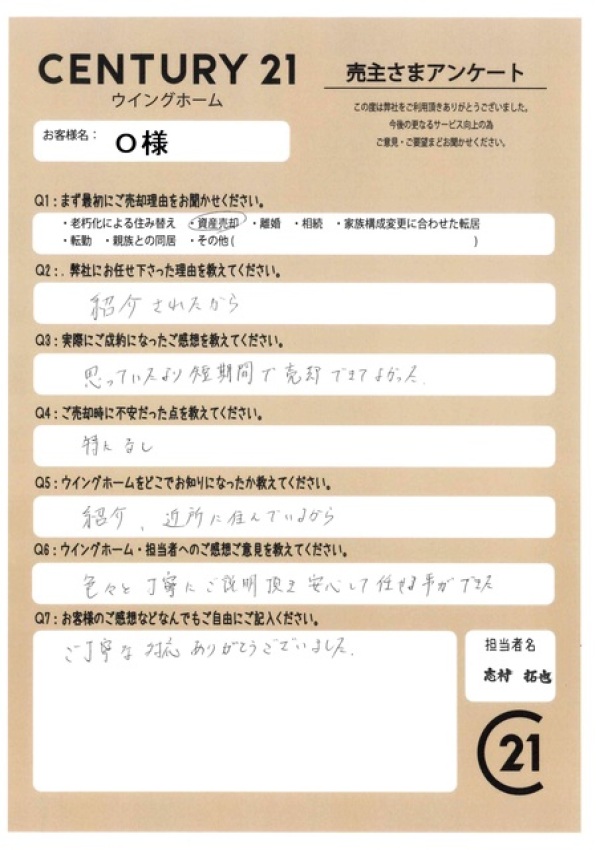 CENTURY 21
ウイングホーム
売主さまアンケート
この度は弊社をご利用頂きありがとうございました。
今後の更なるサービス向上の為
ご意見・ご要望までお聞かせください。
お客様名： O様
Q1：まず最初にご売却理由をお聞かせください。
・老朽化による住み替え ・資産売却 ・離婚 ・相続 ・家族構成変更に合わせた転居
・転勤 ・親族との同居 ・その他( )
Q2：. 弊社にお任せ下さった理由を教えてください。
紹介されたから
Q3：実際にご成約になったご感想を教えてください。
思っていたより短期間で売却できてよかった.
Q4：ご売却時に不安だった点を教えてください。
特になし
Q5：ウイングホームをどこでお知りになったか教えてください。
紹介、近所に住んでいるから
Q6：ウイングホーム・担当者へのご感想ご意見を教えてください。
色々と丁寧にご説明頂き安心して任せる事ができた
Q7：お客様のご感想などなんでもご自由にご記入ください。
ご丁寧な対応ありがとうございました.
担当者名
志村 拓也
21